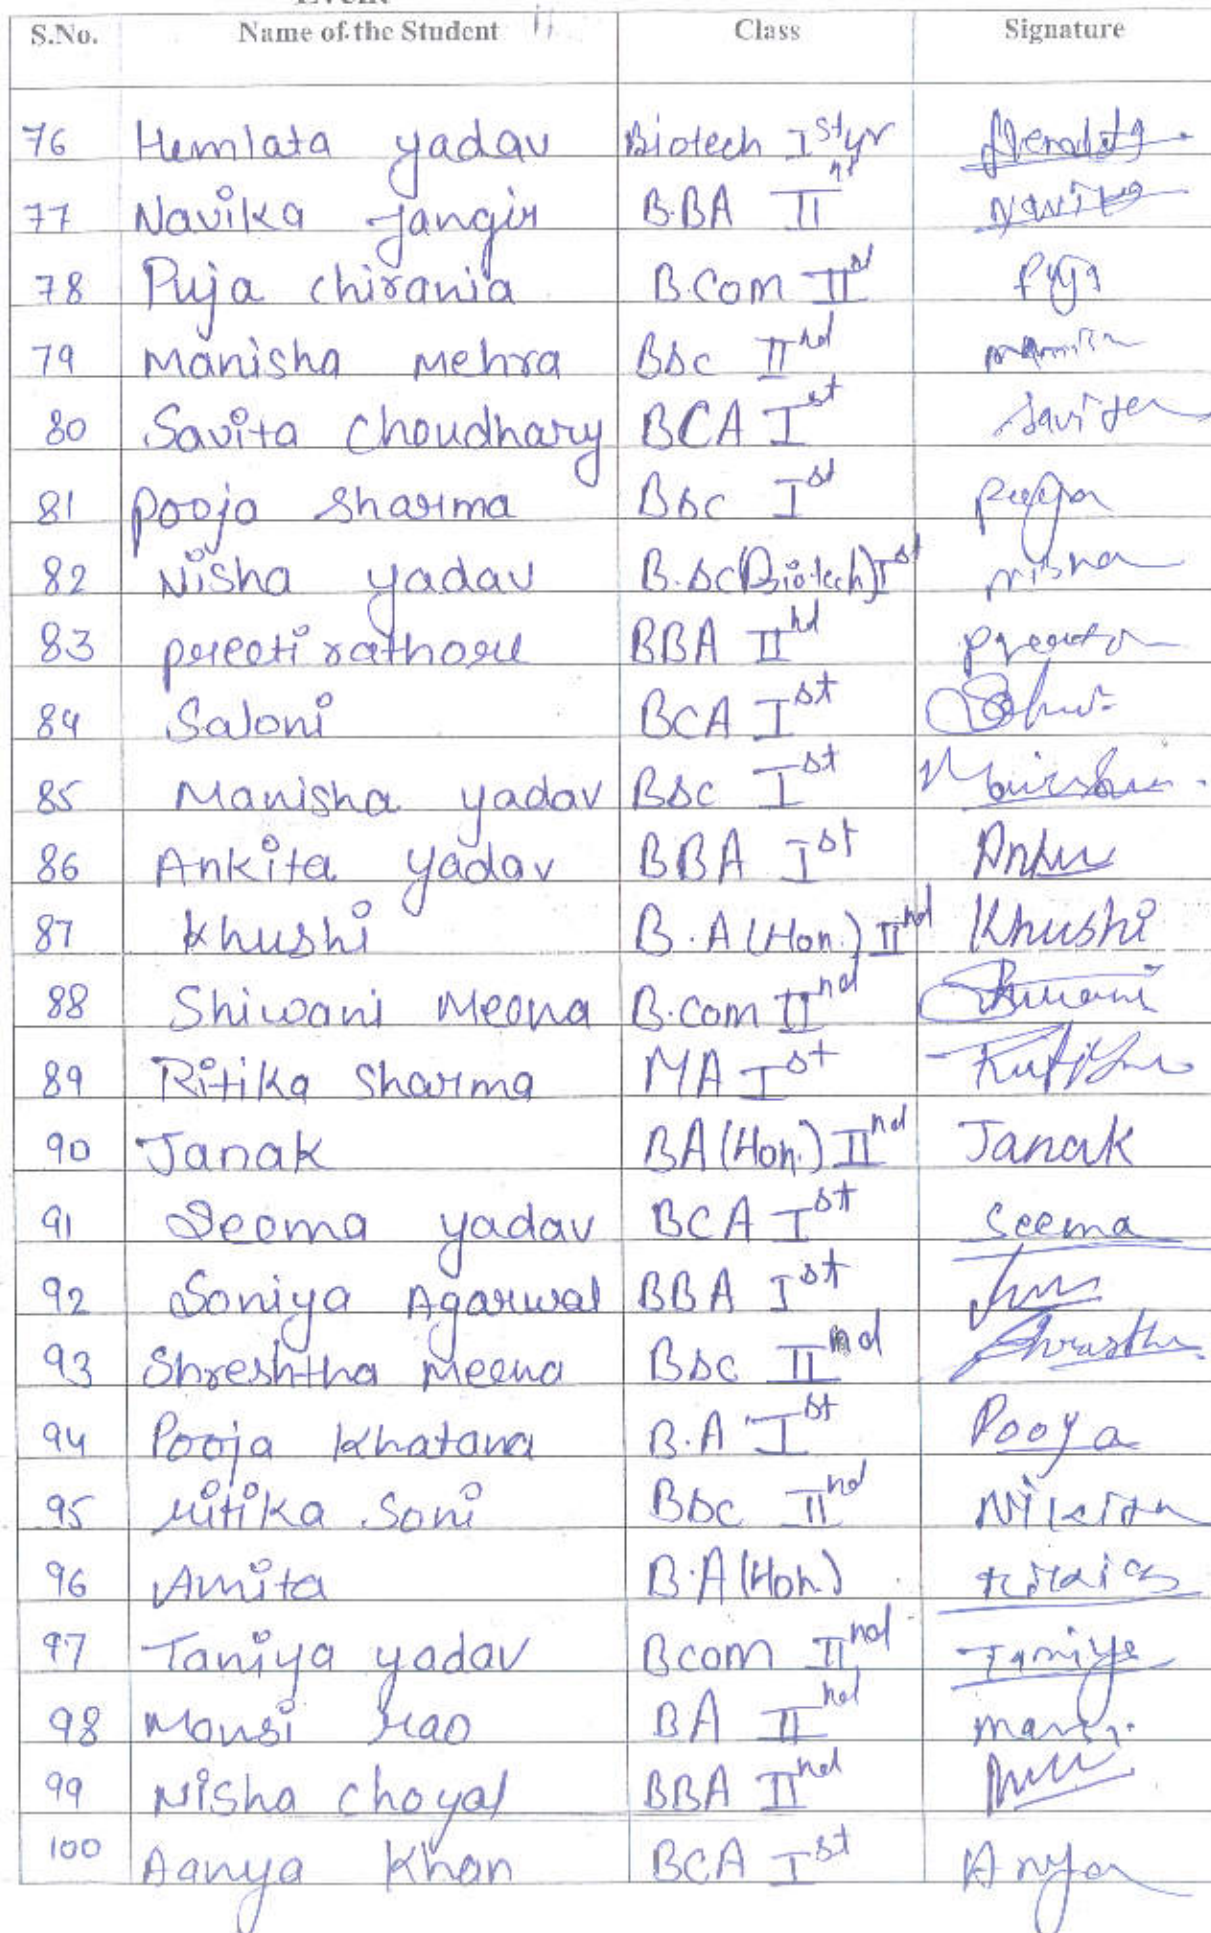 S.No. Name of the Student Class Signature
76 Hemlata yadav Biotech I st yr
77 Navika Jangir B.BA II nd Navika
78 Puja chirania B.Com II nd Puja
79 Manisha Mehra BSc II nd
80 Savita Choudhary BCA I st
81 Pooja Sharma BSc I st
82 Nisha yadav B.Sc(Biotech) I st nisha
83 preeti rathore BBA II nd
84 Saloni BCA I st
85 Manisha yadav BSc I st
86 Ankita yadav BBA I st
87 Khushi B.A(Hon.) II nd Khushi
88 Shiwani Meena B.com II nd
89 Ritika Sharma MA I st
90 Janak BA(Hon.) II nd Janak
91 Seema yadav BCA I st Seema
92 Soniya Agarwal BBA I st
93 Shreshtha Meena BSc II nd
94 Pooja Khatana B.A I st Pooja
95 Ritika Soni BSc II nd
96 Amita B.A(Hon)
97 Taniya yadav Bcom II nd Taniya
98 Mansi Rao BA II nd
99 Nisha choyal BBA II nd
100 Aanya Khan BCA I st